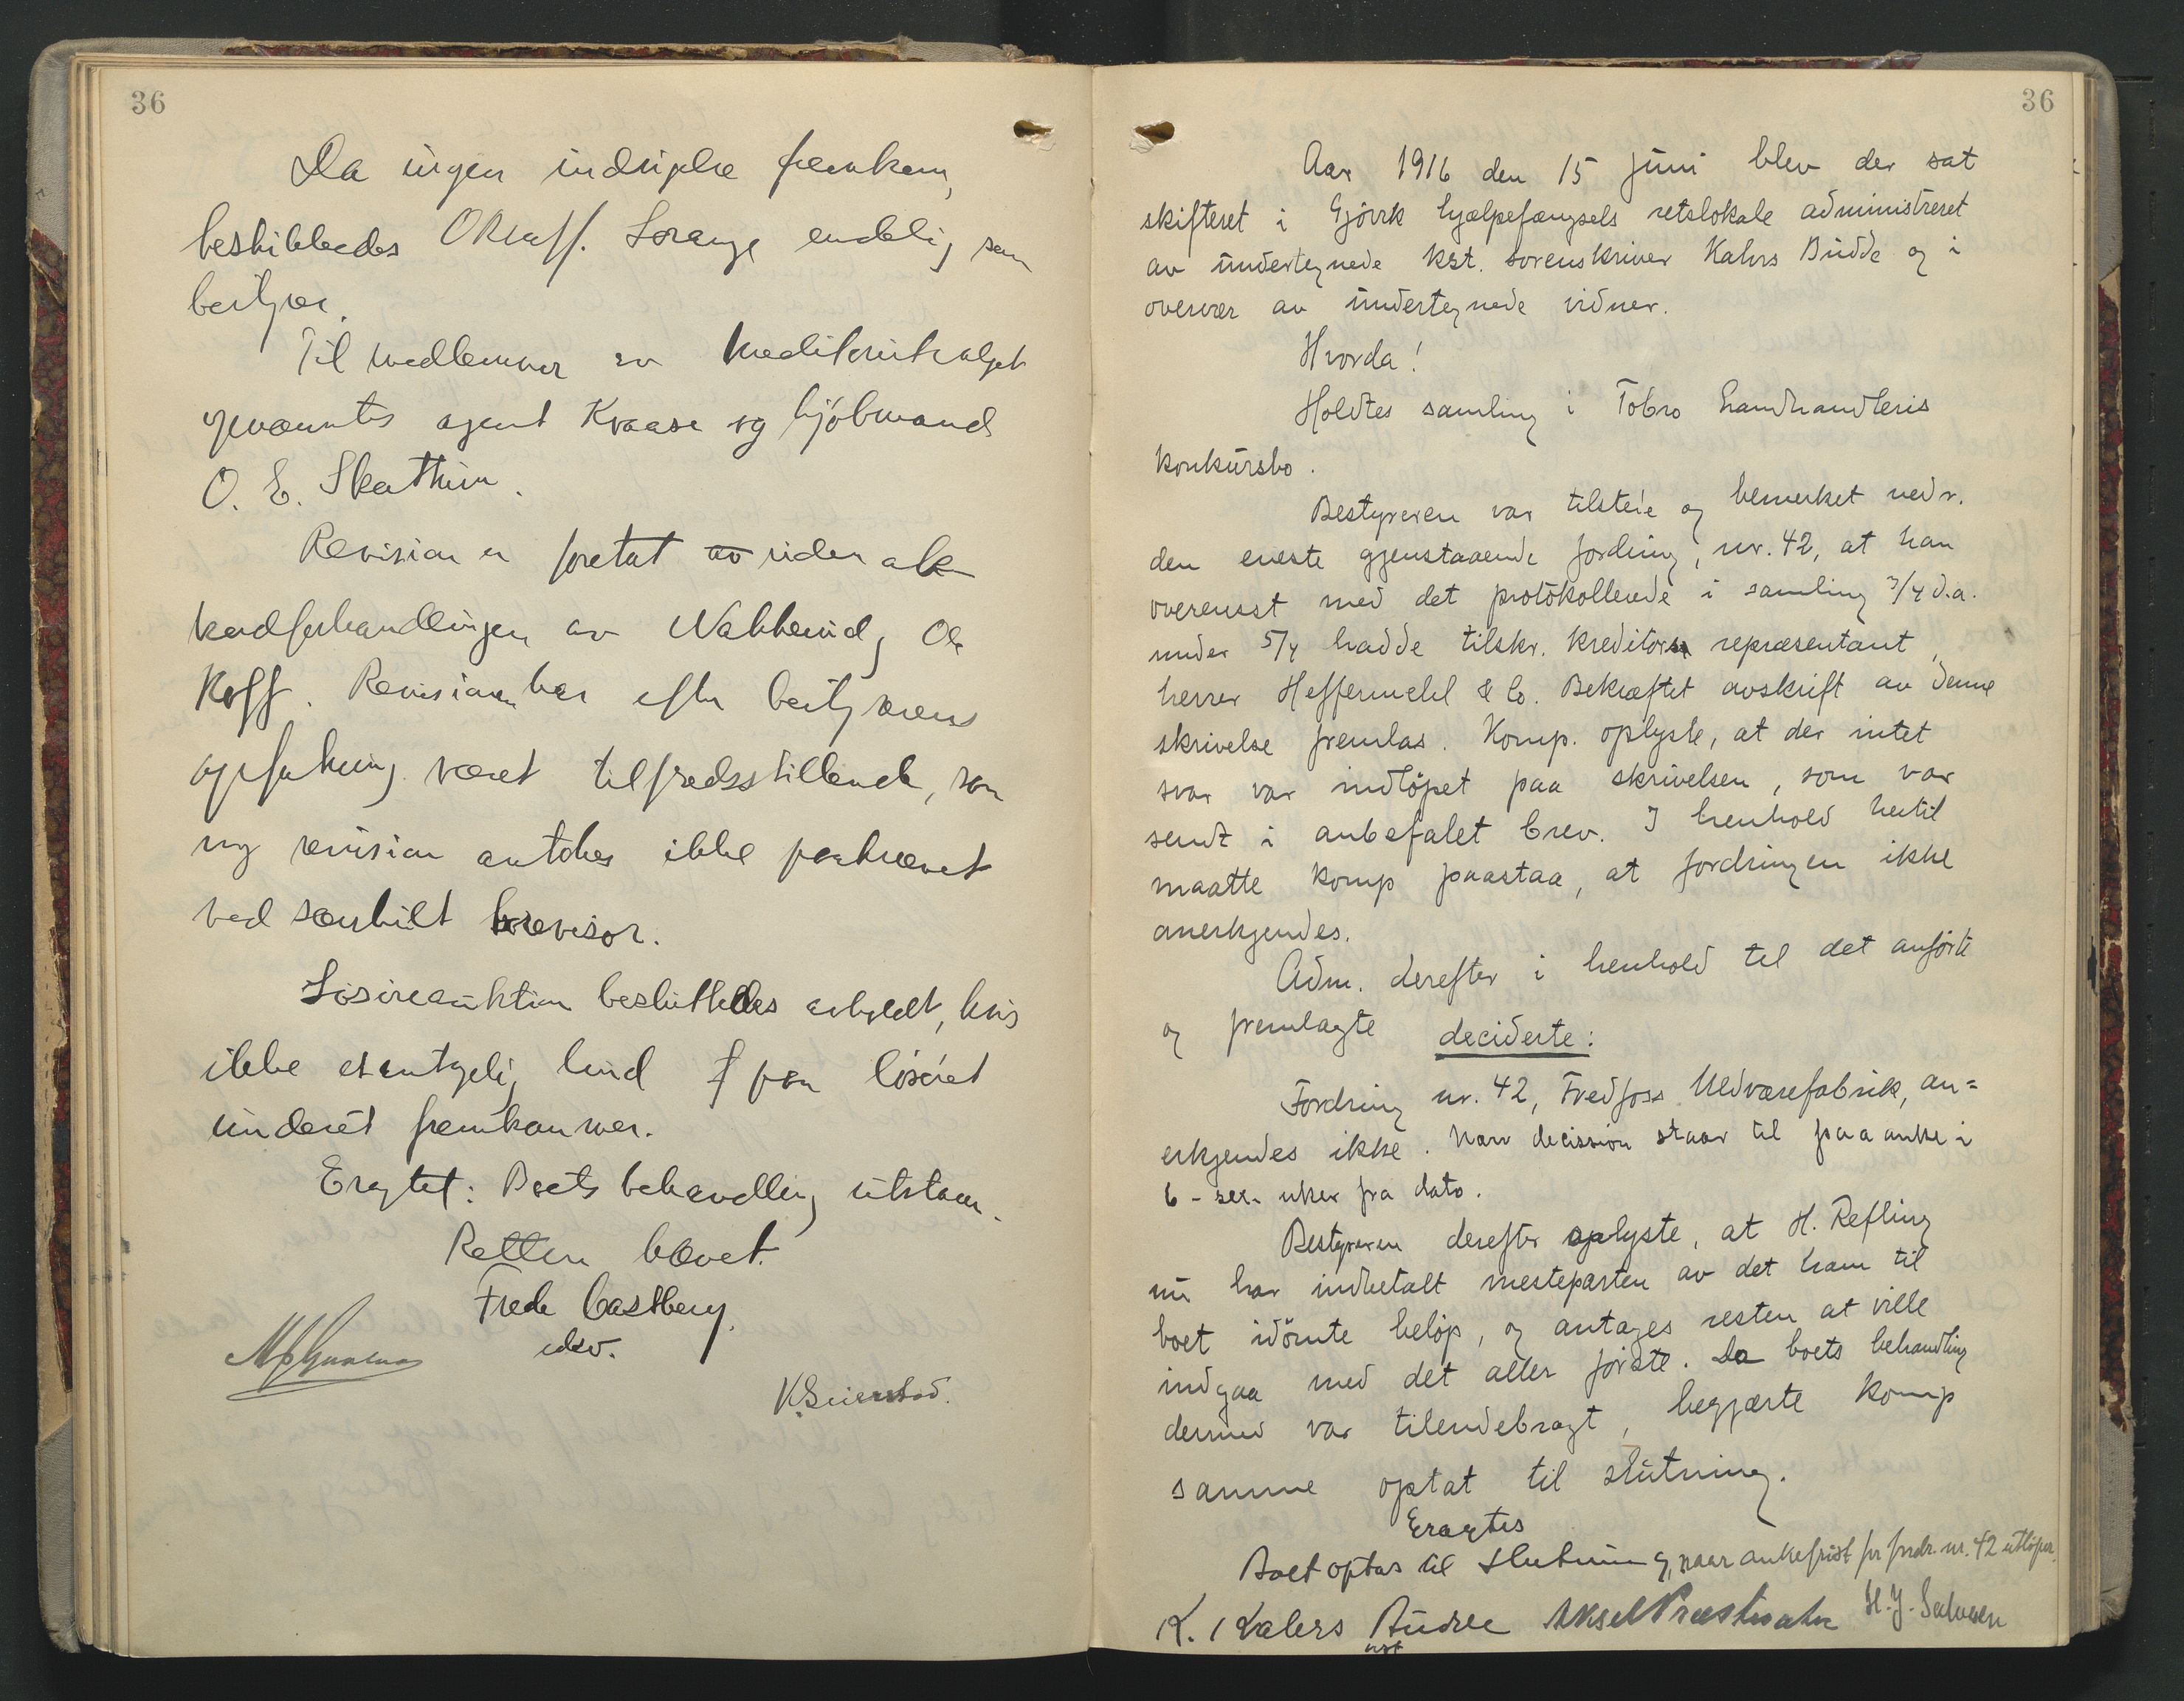 36
Da ingen indsigelse fremkom,
beskikkedes ORsakf. Lorange endelig som
bestyrer.
Til medlemmer av kreditorutvalget
opnævntes agent Kraase og kjöbmand
O. E. Skattum.
Revision er foretat under ak-
kordforhandlingen av
Revisionen har efter bestyrerens
opfatning været tilfredsstillende, saa
ny revision antokes ikke paakrævet
ved særskilt revisor.
Løsøreauktion besluttedes avholdt, hvis
ikke et antagelig bud paa løsøret
underet fremkommer.
Eragtet: Boets behandling utstaar.
Retten hævet.
Frede Castberg
edsv.
K. Seierstad.
36
Aar 1916 den 15 juni blev der sat
skifteret i Gjövik hjælpefængsels retslokale administreret
av undertegnede kst. sorenskriver Kahrs Budde og i
overvær av undertegnede vidner.
Hvorda!
Holdtes samling i Tobro Landhandleris
konkursbo.
Bestyreren var tilstede og bemerket vedr.
den eneste gjenstaaende fordring, nr. 42, at han
overensst med det protokollerede i samling 3/4 d.a.
under 5/4 hadde tilskr. kreditors repræsentant,
herrer Heffermehl & Co. Bekræftet avskrift av denne
skrivelse fremlas. Komp. oplyste, at der intet
svar var indlöpet paa skrivelsen, som var
sendt i anbefalet brev. I henhold hertil
maatte komp paastaa, at fordringen ikke
anerkjendes.
Adm. derefter i henhold til det anförte
og fremlagte deciderte:
Fordring nr. 42, Fredfoss Uldvarefabrik, an=
erkjendes ikke. Nærv decission staar til paaanke i
6 - sex - uker fra dato.
Bestyreren derefter oplyste, at H. Refling
nu har indbetalt mesteparten av det ham til
boet idömte belöp, og antages resten at ville
indgaa med det aller förste. Da boets behandling
dermed var tilendebragt, begjærte komp
samme optat til slutning.
Eragtes
Boet optas til slutning, naar ankefrist for fordr. nr. 42 utlöper.
K. Kahrs Budde Aksel Præsthvatn H. J. Salvesen
kst